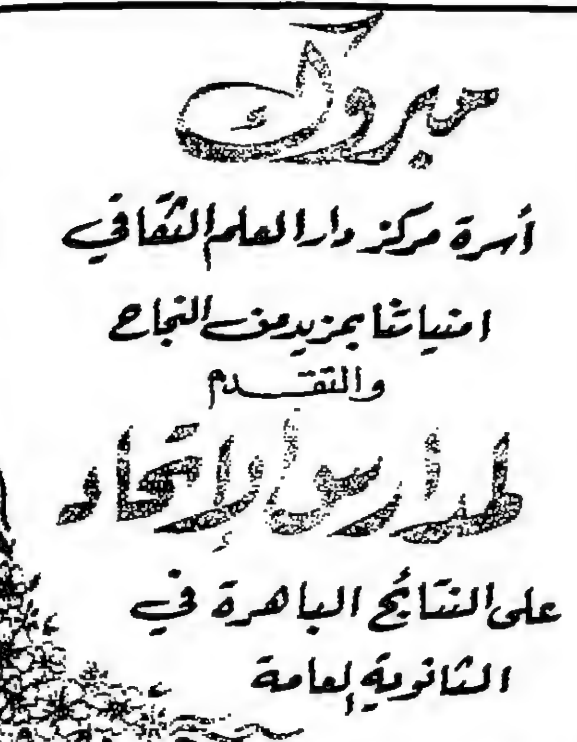 مبروك
أسرة مركز دار العلم الثقافي
امنياتنا بمزيد من النجاح
والتقدم
لمدارس الإتحاد
على النتائج الباهرة في
الثانوية العامة